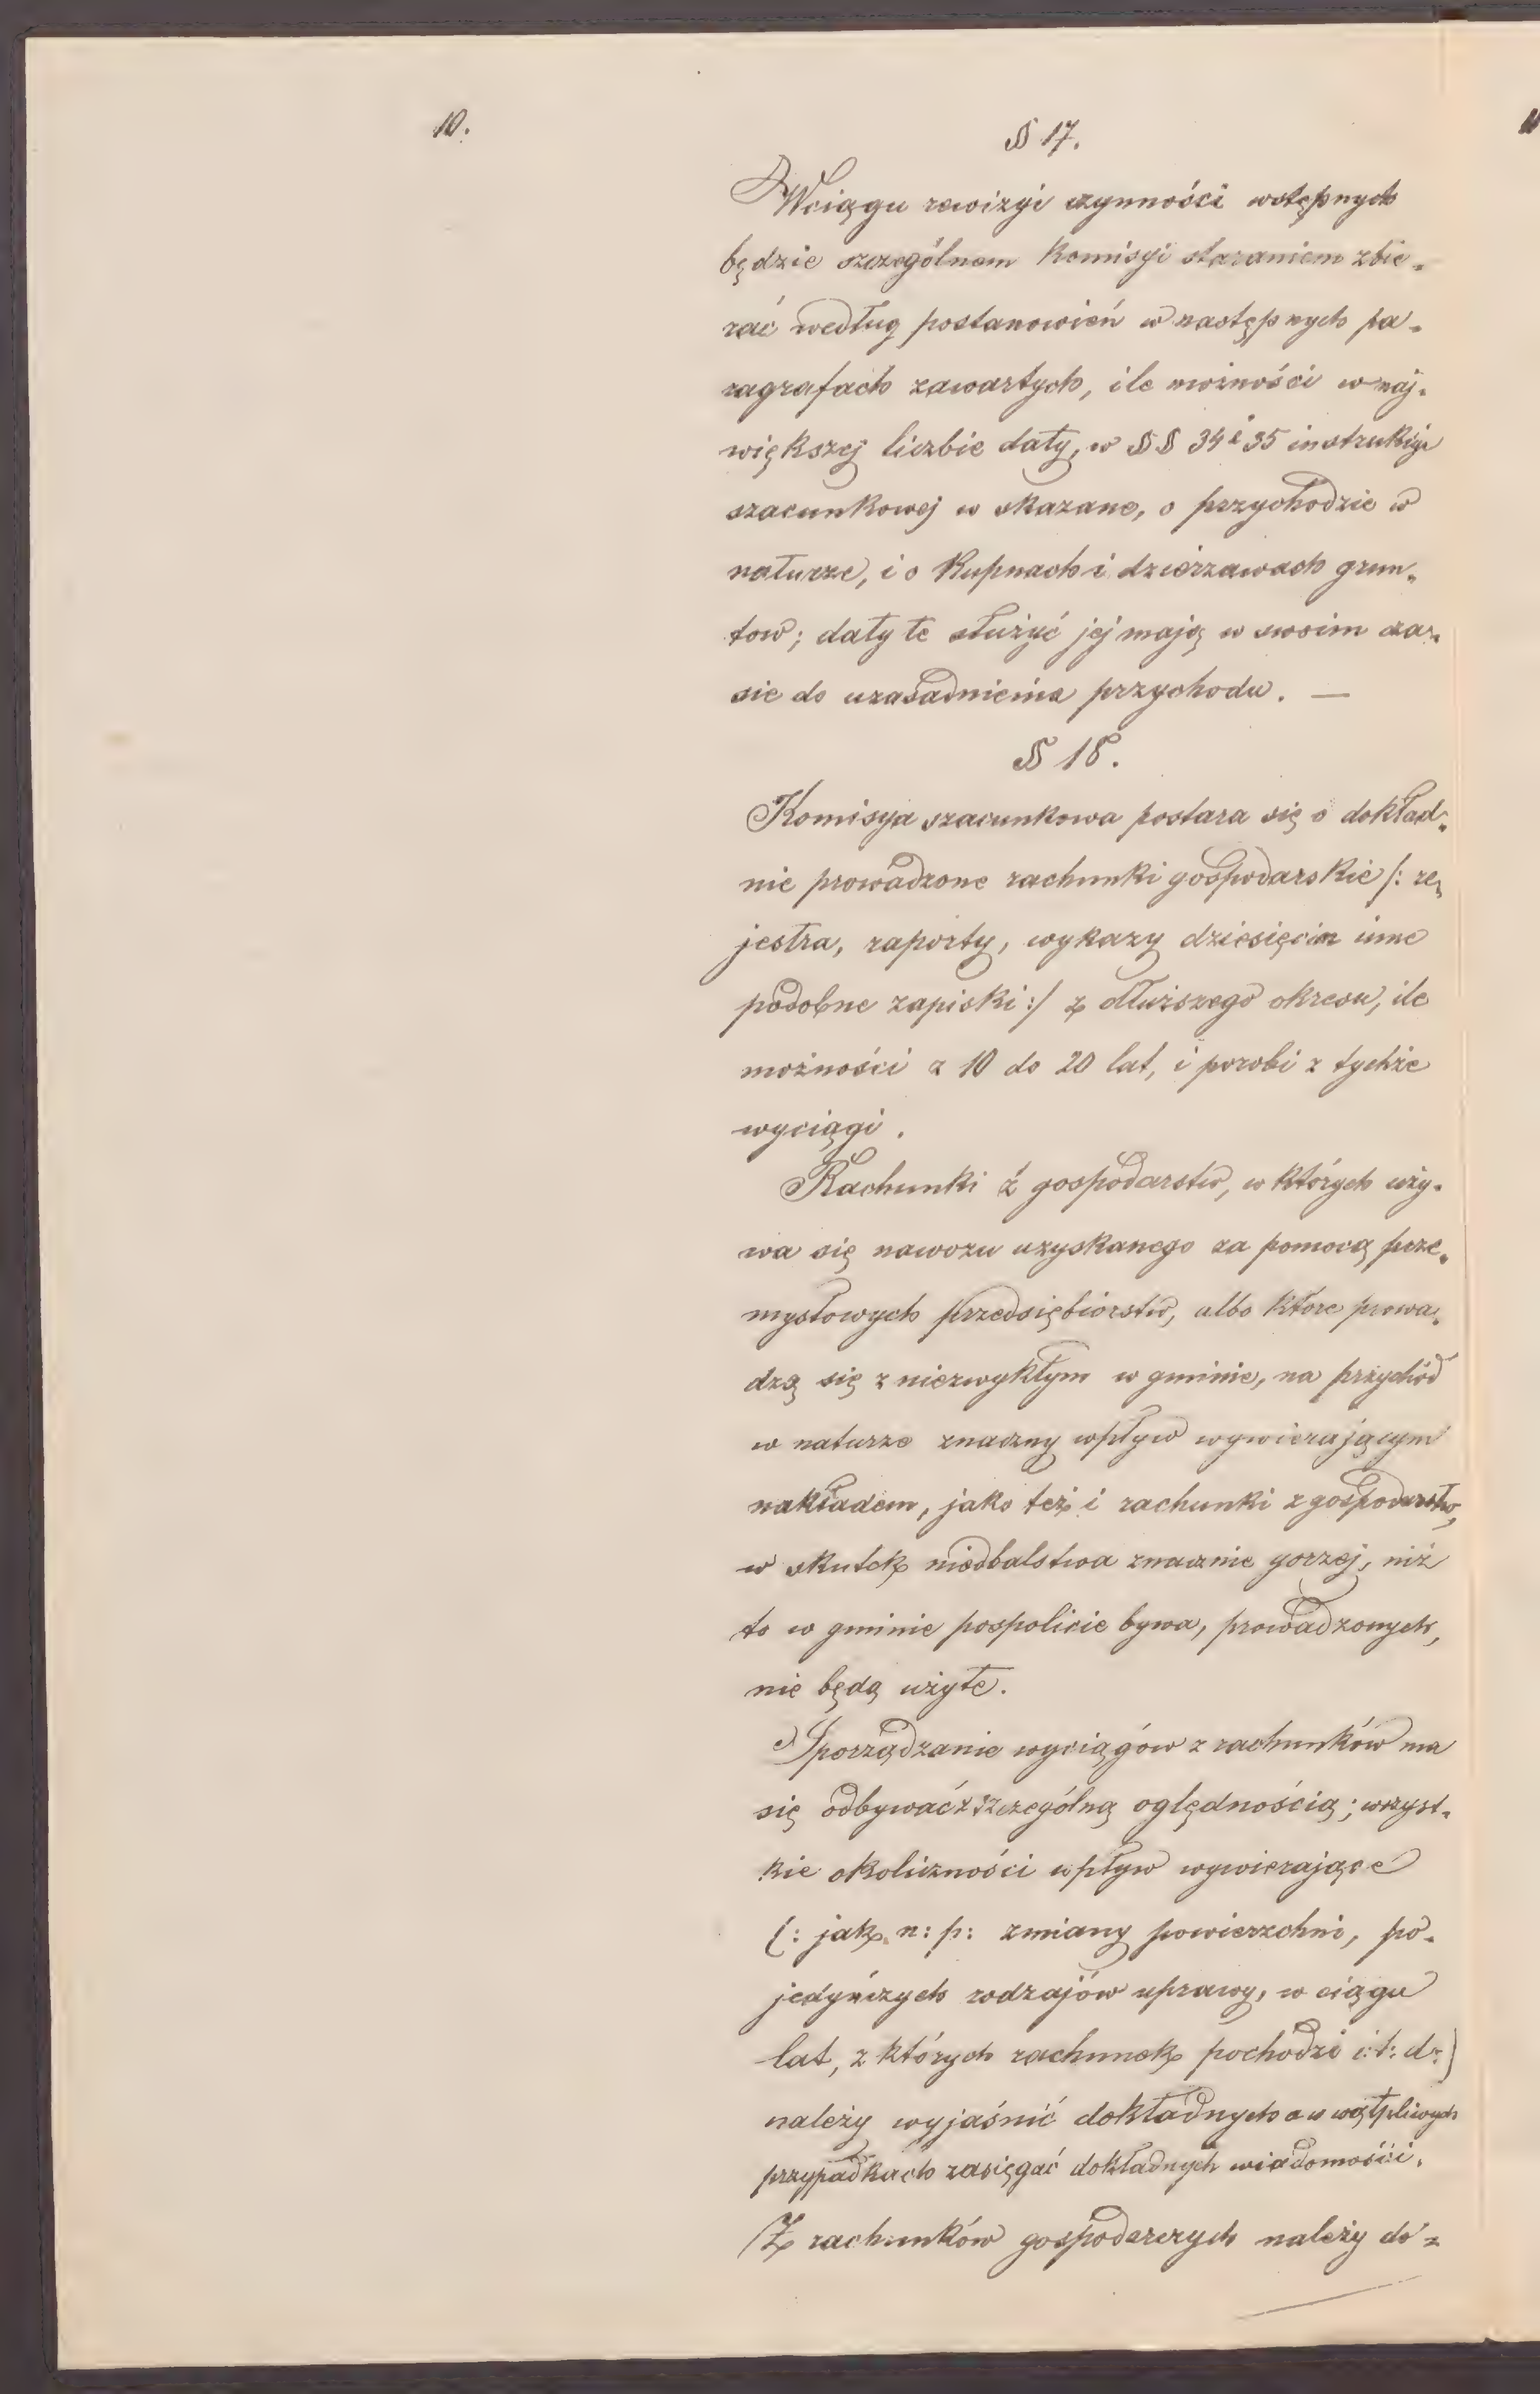 10.
§ 17.
Wciągu rewizyi czynności wstępnych
będzie szczególnem Komisyi staraniem zbie-
rać według postanowień w następnych pa-
ragrafach zawartych, ile możności w naj-
większej liczbie daty, w §§ 34 i 35 instrukcyi
szacunkowej w skazane, o przychodzie w
naturze, i o Kupnach i dzierżawach grun-
tow; daty te służyć jej mają w swoim cza-
sie do uzasadnienia przychodu. —
§ 18.
Komisya szacunkowa postara się o dokład-
nie prowadzone rachunki gospodarskie /: re-
jestra, raporty, wykazy dziesięcin inne
podobne zapiski :/ z dłuższego okresu, ile
możności z 10 do 20 lat, i porobi z tychże
wyciągi.
Rachunki z gospodarstw, w których uży-
wa się nawozu uzyskanego za pomocą prze-
mysłowych przedsiębiorstw, albo które prowa-
dzą się z niezwykłym w gminie, na przychód
w naturze znaczny wpływ wywierającym
nakładem, jako też i rachunki z gospodarstw,
w skutek niedbalstwa znacznie gorzej, niż
to w gminie pospolicie bywa, prowadzonych,
nie będą użyte.
Sporządzanie wyciągów z rachunków ma
się odbywać z szczególną oględnością; wszyst-
kie okoliczności wpływ wywierające
(: jak n: p: zmiany powierzchni, po-
jedyńczych rodzajów uprawy, w ciągu
lat, z których rachunek pochodzi i: t: d:)
należy wyjaśnić dokładnych a w wątpliwych
przypadkach zasięgać dokładnych wiadomości.
Z rachunków gospodarczych należy do-